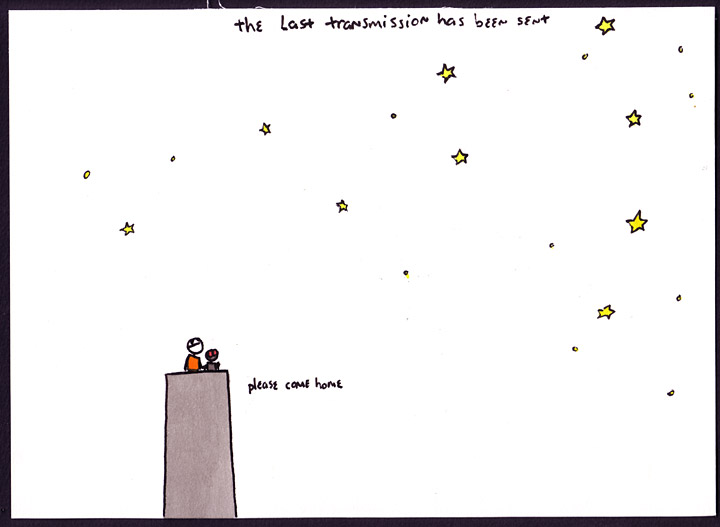 the Last transmission has been sent
please come home